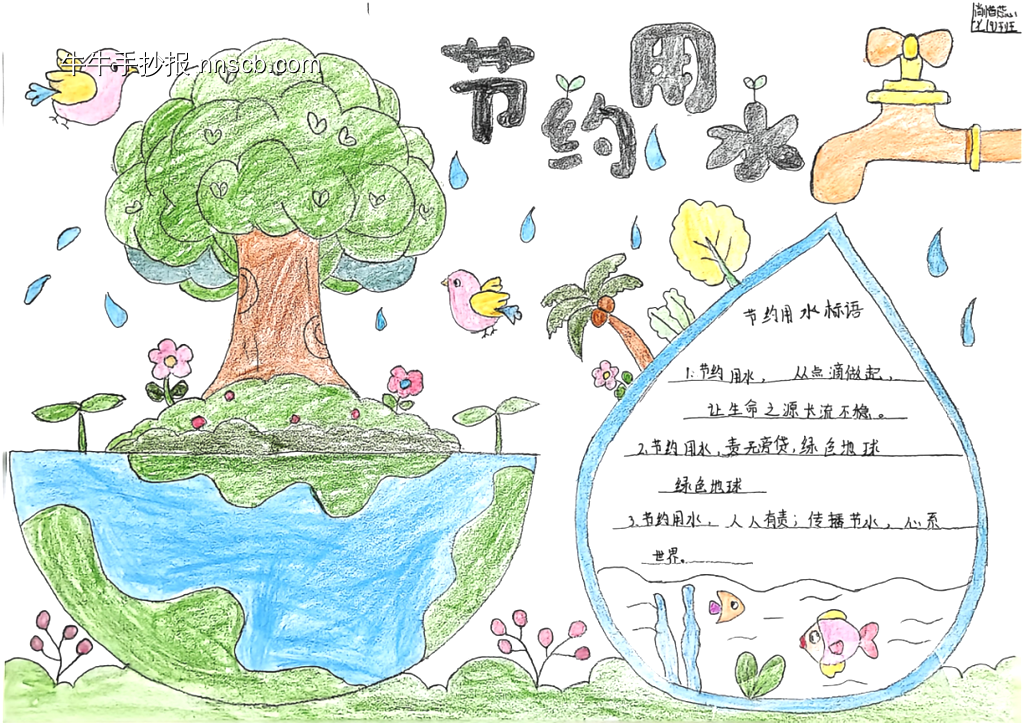 牛牛手抄报-nnscb.com
节约用水
节约用水标语
1.节约用水， 从点滴做起，
让生命之源长流不
2.节约用水，责无旁贷，绿色地球
绿色地球
3.节约用水，人人有责；传播节水，心系
世界。